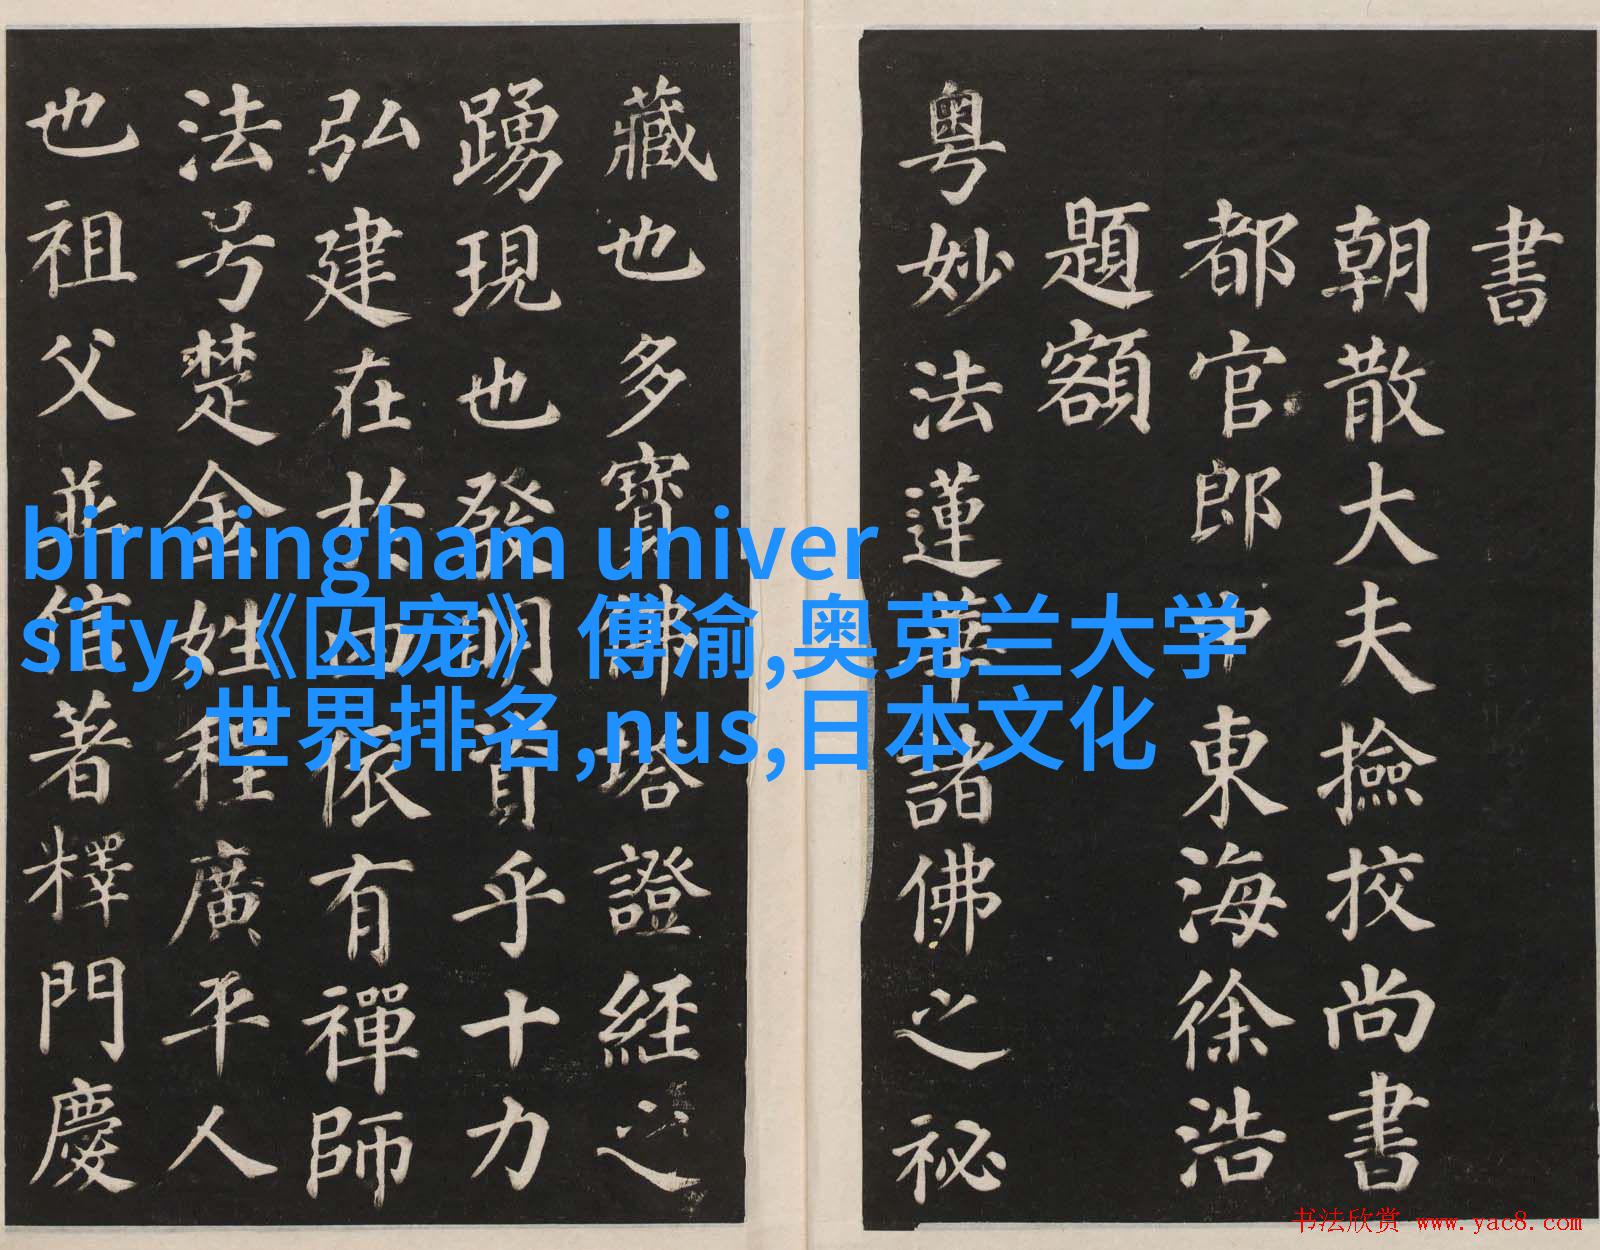 書
朝散大夫撿挍尚書
都官郎中東海徐浩
題額
粵妙法蓮華諸佛之祕
藏也多寶佛塔證經之
踴現也發明資乎十力
弘建在扵四依有禪師
法号楚金姓程廣平人
也祖父並信著釋門慶
birmingham univer
sity,《囚宠》傅渝,奥克兰大学
世界排名,nus,日本文化
书法欣赏 www.yac8.com